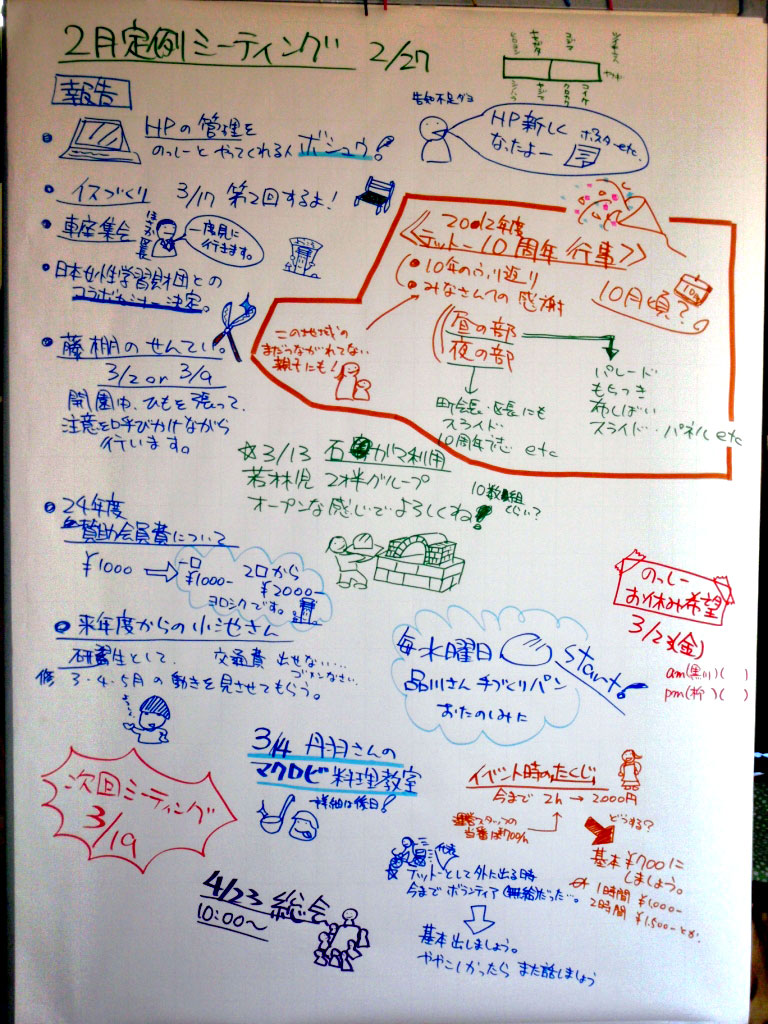 2月定例ミーティング 2/27
報告
告知不足ダヨ
HP新しく
なったよー
ポスターetc.
HPの管理を
のっしーとやってくれる人 ボシュウ!
イスづくり 3/17 第2回するよ!
車座集会
一度見に
行きます。
日本女性学習財団との
コラボセミナー決定。
藤棚のせんてい。
3/2 or 3/9
開園中、ひもを張って、
注意を呼びかけながら
行います。
2012年度
《テットー10周年行事》
・10年のふり返り
・みなさんへの感謝
10月頃?
この地域の
まだつながれてない
親子にも!
昼の部
夜の部
パレード
もちつき
布しばい
スライド・パネル etc
町会長・区長にも
スライド
10周年誌 etc
☆3/13 石ガマ利用
若林児 2才半グループ
オープンな感じでよろしくね!
10数組
くらい?
24年度
賛助会員費について
¥1000 → 一口 ¥1000- 2口から ¥2000-
ヨロシクです。
のっしー
お休み希望
3/23(金)
am(黒川)( )
pm(柳)( )
来年度からの小池さん
研修生として、 交通費 出せない…
ゴメンなさい
3・4・5月の動きを見させてもらう。
毎水曜日 start!
品川さん 手づくりパン
おたのしみに
次回ミーティング
3/19
3/4 丹羽さんの
マクロビ料理教室
詳細は後日!
イベント時のたくじ
今まで 2h → 2000円
運営スタッフの
当番は700/h
どうする?
基本¥700に
しましょう。
1時間 ¥1,000-
2時間 ¥1,500-とか
テットーとして外に出る時
今までボランティア(無給だった…。
基本出しましょう。
ややこしかったらまた話しましょう
4/23 総会
10:00～